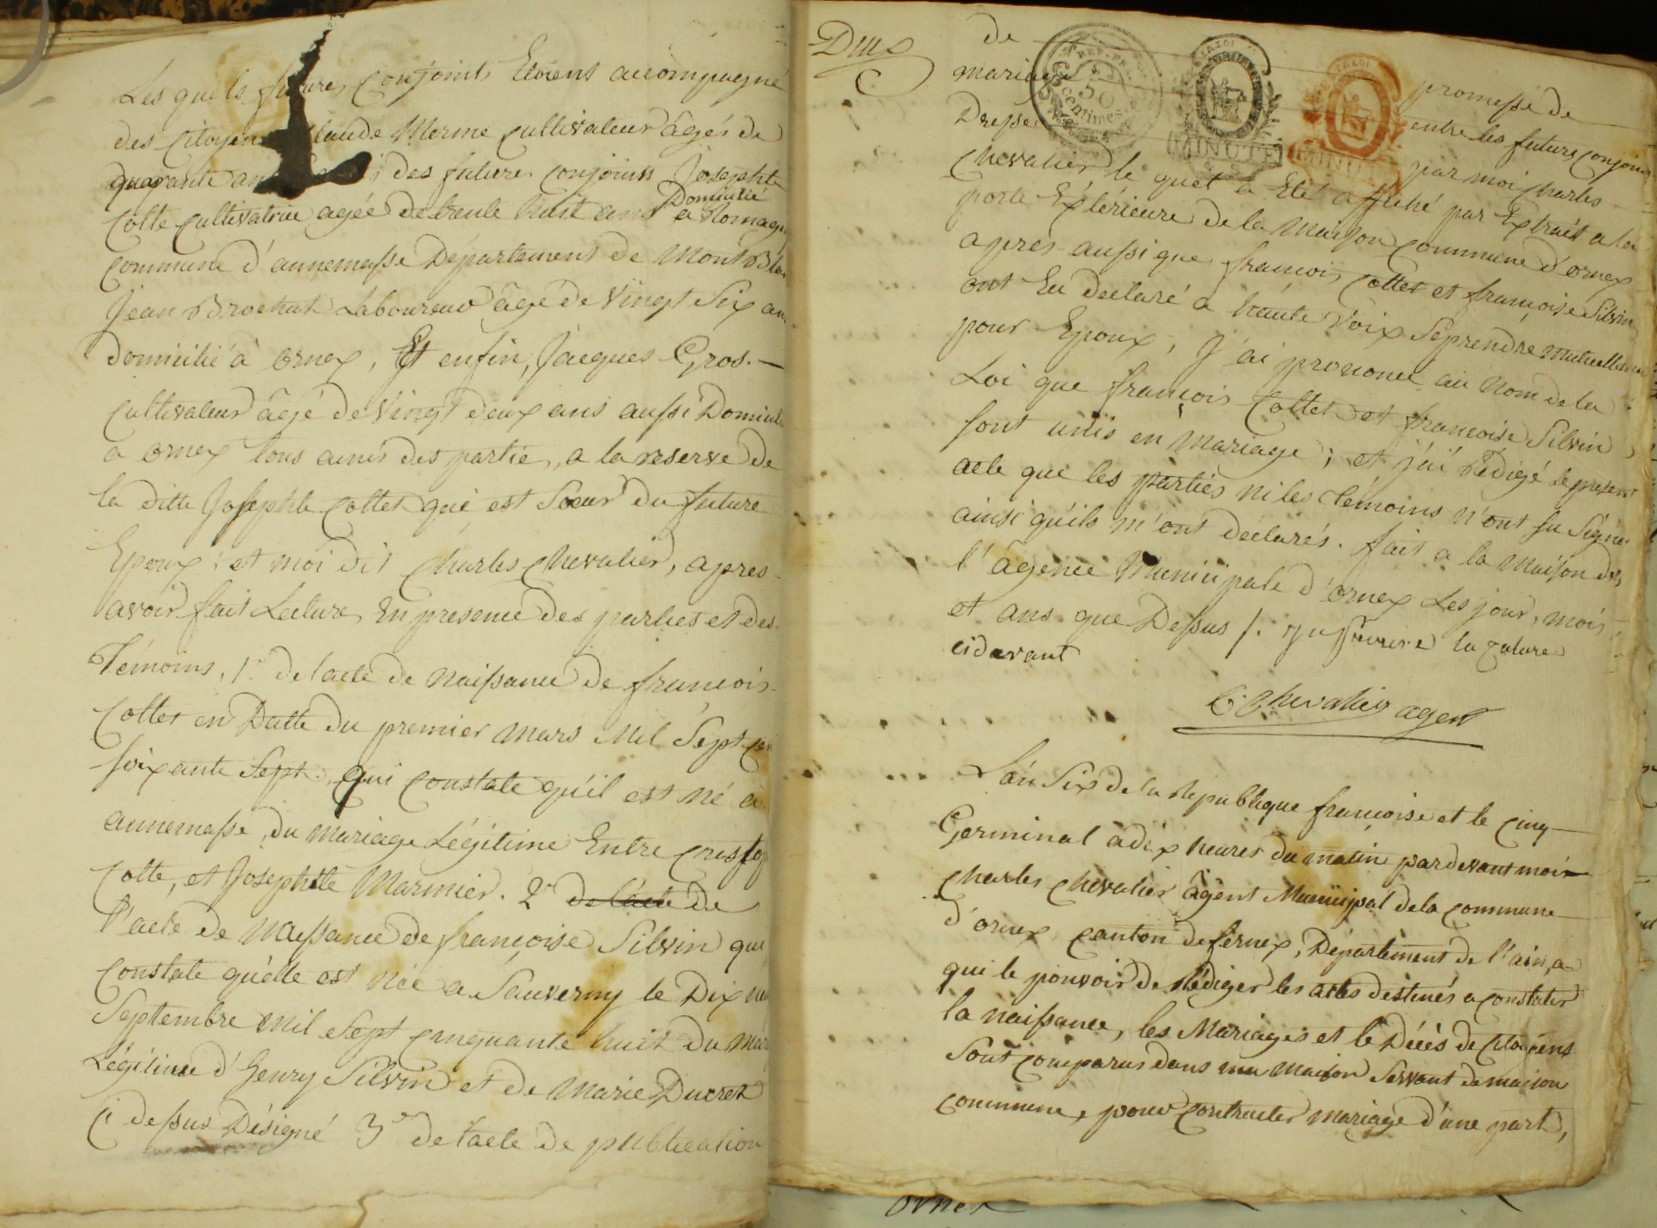 Lesquels future conjoints Etoiens accompagné
des Citoyens Claude Merme cultivateur âgés de
quarante ans des future conjoints Josephte
Cotte cultivatrice agée de trente huit ans Domicilié a Romagn
commune d'annemasse Département de Mont Bla
Jean Brochut Laboureur âgé de Vingt Six ans
domicilié à ornex, Et enfin, Jacques Gros.
cultivateur âgé de Vingt deux ans aussi Domicil
a ornex tous amis des partie, a la reserve de
la ditte Josephte Cottet qui est Soeur du future
Epoux ; et moi dit Charles Chevalier, apres
avoir fait Lecture, En presence des parties et des
Témoins, 1° de l'acte de Naissance de francois
Cottet en Datte du premier Mars Mil Sept cen
soixante Sept, qui constate qu'il est né a
annemasse, du mariage Légitime Entre
Cotte, et Josephte Marmier. 2° de l'acte de
l'acte de Naissance de françoise Silvin qui
constate qu'elle est Née a Sauverny le Dix
Septembre Mil Sept cinquante huit du Mar
Légitime d'henry Silvin et de Marie Ducret
ci dessus Désigné 3° de l'acte de publication
Deux
de promesse de
mariage entre les future conjoin
Dressé par moi Charles
Chevalier le quel a Eté affiché par Extrait a la
porte Extérieure de la Maison commune d'ornex
apres aussi que francois Cottet et françoise Silvin
ont Eu declaré a haute Voix Se prendre mutuellem
pour Epoux, J'ai prononcé au Nom de la
Loi que françois Cottet et francoise Silvin
sont unis en Mariage ; et j'ai Rédigé le present
acte que les parties ni les témoins n'ont su Signé
ainsi qu'ils m'ont déclarés. fait a la Maison de
l'âgence Municipale d'ornex Les jour, mois
et ans que Dessus /. la rature
cidevant
C. Chevalier agent
L'an Six de la Republique francoise et le cinq
Germinal à dix heures du matin par devant moi
Charles Chevalier âgent Municipal de la commune
d'ornex canton de fernex, Département de l'ain, a
qui le pouvoir de Rédiger les actes destinés a constater
la naissance, les Mariages et le Décès de Citoyens
Sont comparus dans ma Maison Servant de maison
commune, pour contracter mariage d'une part,
REP. FRA.
50
centimes
MINUTE
MINUTE
ornex